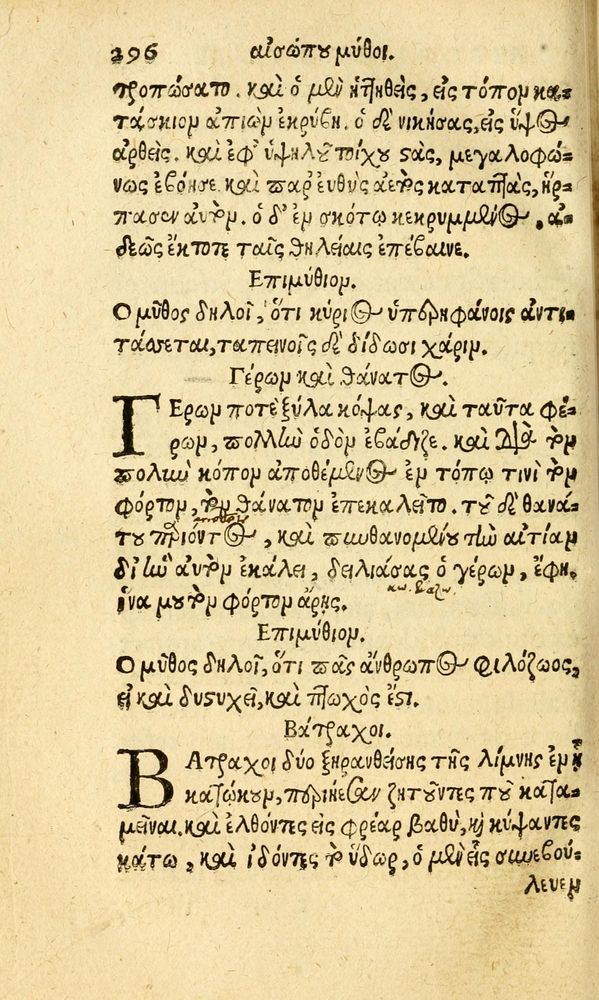 296 αἰσώπου μῦθοι.
τροπώσατο. καὶ ὁ μὲν ἡττηθεὶς, εἰς τόπον κα-
τάσκιον ἀπιὼν ἐκρύβη. ὁ δὲ νικήσας, εἰς ὕψος
ἀρθεὶς. καὶ ἐφ' ὑψηλοῦ τοίχου στὰς, μεγαλοφώ-
νως ἐβόησε. καὶ παρευθὺς ἀετὸς καταπτὰς, ἥρ-
πασεν αὐτόν. ὁ δ' ἐν σκότῳ κεκρυμμένος, ἀ-
δεῶς ἔκτοτε ταῖς θηλείαις ἐπέβαινε.
Επιμύθιον.
Ο μῦθος δηλοῖ, ὅτι κύριος ὑπερηφάνοις ἀντι-
τάσσεται, ταπεινοῖς δὲ δίδωσι χάριν.
Γέρων καὶ θάνατος.
ΓΕρων ποτὲ ξύλα κόψας, καὶ ταῦτα φέ-
ρων, πολλὴν ὁδὸν ἐβάδιζε. καὶ διὰ τὸν
πολὺν κόπον ἀποθέμενος ἐν τόπῳ τινὶ τὸν
φόρτον, τὸν θάνατον ἐπεκαλεῖτο. τοῦ δὲ θανά-
του παριόντος, καὶ πυνθανομένου τὴν αἰτίαν
δι' ἣν αὐτὸν ἐκάλει, δειλιάσας ὁ γέρων, ἔφη,
ἵνα μου τὸν φόρτον ἄρῃς.
Επιμύθιον.
Ο μῦθος δηλοῖ, ὅτι πᾶς ἄνθρωπος φιλόζωος,
εἰ καὶ δυστυχεῖ, καὶ πτωχὸς ἐστι.
Βάτραχοι.
ΒΑτραχοι δύο ξηρανθείσης τῆς λίμνης ἐν ᾗ
κατῴκουν, περιῄεσαν ζητοῦντες ποῦ κατα-
μεῖναι. καὶ ἐλθόντες εἰς φρέαρ βαθὺ, καὶ κύψαντες
κάτω, καὶ ἰδόντες τὸ ὕδωρ, ὁ μὲν εἷς συνεβού-
λευεν